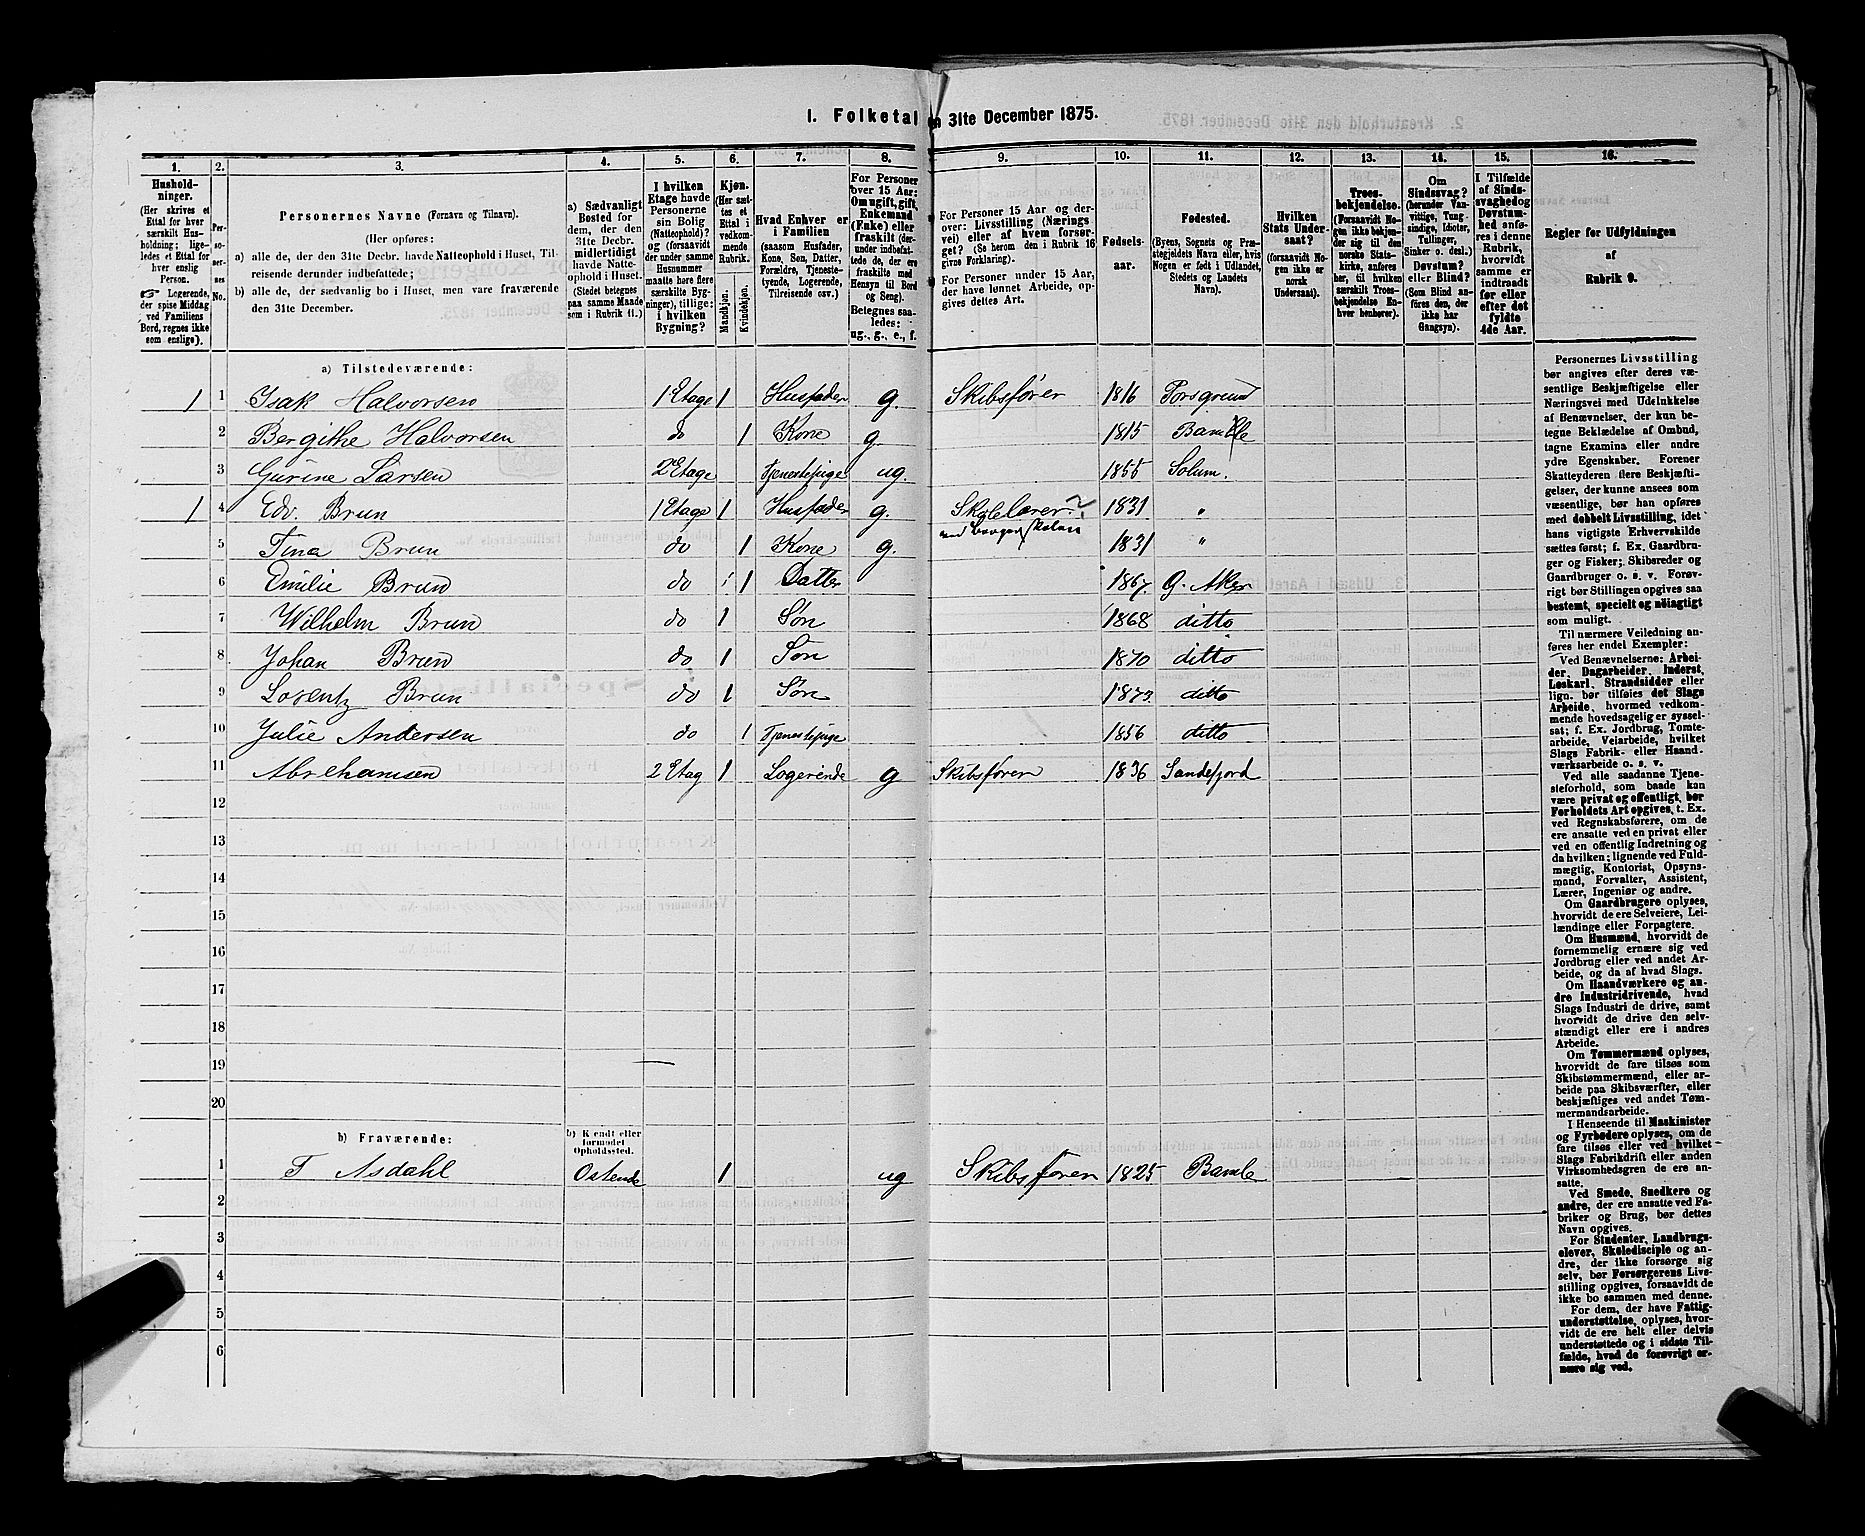 I. Folketal den 31te December 1875.
1. 2. 3. 4. 5. 6. 7. 8. 9. 10. 11. 12. 13. 14. 15. 16.
Hushold-
ninger.
(Her skrives et
Ettal for hver
særskilt Hus-
holdning; lige-
ledes et Ettal for
hver enslig
Person.
Logerende,
der spise Middag
ved Familiens
Bord, regnes ikke
som enslige).
Per-
so-
ner-
nes
No.
Personernes Navne (Fornavn og Tilnavn).
(Her opføres:
a) alle de, der den 31te Decbr. havde Natteophold i Huset, Til-
reisende derunder indbefattede;
b) alle de, der sædvanlig bo i Huset, men vare fraværende
den 31te December.
a) Sædvanligt
Bosted for
dem, der den
31te Decbr.
midlertidigt
havde Natte-
ophold i Huset.
(Stedet betegnes
paa samme Maade
som i Rubrik 11.)
I hvilken
Etage havde
Personerne
sin Bolig
(Natteophold)?
og (forsaavidt
der under samme
Husnummer
maatte høre flere
særskilte Byg-
ninger), tillige:
i hvilken
Bygning?
Kjøn.
(Her sæt-
tes et
Ettal i
vedkom-
mende
Rubrik.
Mandkjøn.
Kvindekjøn.
Hvad Enhver er
i Familien
(saasom Husfader,
Kone, Søn, Datter,
Forældre, Tjeneste-
tyende, Logerende,
Tilreisende osv.)
For Personer
over 15 Aar:
Om ugift, gift,
Enkemand
(Enke) eller
fraskilt (der-
under indbefat-
tede de, der ere
fraskilte med
Hensyn til Bord
og Seng).
Betegnes saa-
ledes:
ug., g., e., f.
For Personer 15 Aar og der-
over: Livsstilling (Nærings-
vei) eller af hvem forsør-
get? (Se herom den i Rubrik 16
givne Forklaring).
For Personer under 15 Aar,
der have lønnet Arbeide, op-
gives dettes Art.
Fødsels-
aar.
Fødested.
(Byens, Sognets og Præ-
stegjeldets Navn eller, hvis
Nogen er født i Udlandet,
Stedets og Landets
Navn).
Hvilken
Stats Under-
saat?
(forsaavidt No-
gen ikke er
norsk
Undersaat).
Troes-
bekjendelse.
(Forsaavidt No-
gen ikke bekjen-
der sig til den
norske Stats-
kirke, anføres
her, til hvilken
særskilt Troes-
bekjendelse En-
hver henhører).
Om
Sindssvag?
(herunder Van-
vittige, Tung-
sindige, Idioter,
Tullinger,
Sinker o. desl.)
Døvstum?
eller Blind?
(Som Blind an-
føres den, der
ikke har
Gangsyn).
I Tilfælde
af Sinds-
svaghed og
Døvstum-
hed anfø-
res i denne
Rubrik,
hvorvidt
samme er
indtraadt
før eller
efter det
fyldte
4de Aar.
Regler for Udfyldningen
af
Rubrik 9.
a) Tilstedeværende:
1 1 Isak Halvorsen 1 Etage 1 Husfader g. Skibsfører 1816 Porsgrund
2 Bergithe Halvorsen do 1 Kone g 1815 Bamble
3 Gurine Larsen 2 Etage Tjenestepige ug. 1855 Solum.
1 4 Edv. Brun 1 Etage 1 Husfader g. Skolelærer ? 1831 "
ved Borgerskolen
5 Tina Brun do 1 Kone g. 1831 "
6 Emilie Brun do 1 Datter 1867. G. Aker
7 Wilhelm Brun do 1 Søn 1868 ditto
8 Johan Brun do 1 Søn 1870 ditto
9 Lorentz Brun do 1 Søn 1873. ditto
10 Julie Andersen do 1 Tjenestepige 1856 ditto
11 Abrehamsen 2 Etag 1 Logerende g Skibsføren 1836 Sandefjord
12
13
14
15
16
17
18
19
20
b) Fraværende:
b) Kjendt eller
formodet
Opholdssted.
1 T Asdahl Ostende 1 ug Skibsføren 1825 Bamle
2
3
4
5
6
Personernes Livsstilling
bør angives efter deres væ-
sentlige Beskjæftigelse eller
Næringsvei med Udelukkelse
af Benævnelser, der kun be-
tegne Beklædelse af Ombud,
tagne Examina eller andre
ydre Egenskaber. Forener
Skatteyderen flere Beskjæfti-
gelser, der kunne ansees som
væsentlige, bør han opføres
med dobbelt Livsstilling, idet
hans vigtigste Erhvervskilde
sættes først; f. Ex. Gaardbru-
ger og Fisker; Skibsreder og
Gaardbruger o. s. v. Forøv-
rigt bør Stillingen opgives saa
bestemt, specielt og nøiagtigt
som muligt.
Til nærmere Veiledning an-
føres her endel Exempler:
Ved Benævnelserne: Arbei-
der, Dagarbeider, Inderst,
Løskarl, Strandsidder eller
lign. bør tilføies det Slags
Arbeide, hvormed vedkom-
mende hovedsagelig er syssel-
sat; f. Ex. Jordbrug, Tomte-
arbeide, Veiarbeide, hvilket
Slags Fabrik- eller Haand-
værksarbeide o. s. v.
Ved alle saadanne Tjene-
steforhold, som baade kan
være privat og offentligt, bør
Forholdets Art opgives, t. Ex.
ved Regnskabsførere, om de
ere ansatte ved en privat eller
ved en offentlig Indretning og
da hvilken; lignende ved Fuld-
mægtig, Kontorist, Opsyns-
mand, Forvalter, Assistent,
Lærer, Ingeniør og andre.
Om Gaardbrugere oplyses,
hvorvidt de ere Selveiere, Lei-
lændinge eller Forpagtere.
Om Husmænd, hvorvidt de
fornemmelig ernære sig ved
Jordbrug eller ved andet Ar-
beide, og da af hvad Slags.
Om Haandværkere og an-
dre Industridrivende, hvad
Slags Industri de drive, samt
hvorvidt de drive den selv-
stændigt eller ere i andres
Arbeide.
Om Tømmermænd oplyses,
hvorvidt de fare tilsøs som
Skibstømmermænd, eller ar-
beide paa Skibsværfter, eller
beskjæftiges ved andet Tøm-
mermandsarbeide.
I Henseende til Maskinister
og Fyrbødere oplyses, om de
fare tilsøs eller ved hvilket
Slags Fabrikdrift eller anden
Virksomhedsgren de ere an-
satte.
Ved Smede, Snedkere og
andre, der ere ansatte ved Fa-
briker og Brug, bør dettes
Navn opgives.
For Studenter, Landbrugs-
elever, Skoledisciple og an-
dre, der ikke forsørge sig
selv, bør Forsørgerens Livs-
stilling opgives, forsaavidt de
ikke bo sammen med denne.
For dem, der have Fattig-
understøttelse, oplyses, hvor-
vidt de ere helt eller delvis
understøttede og i sidste Til-
fælde, hvad de forøvrigt er-
nære sig ved.